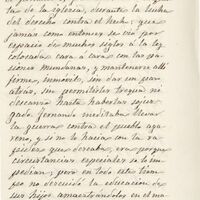 tas de la iglesia, durante la lucha
del derecho contra el hecho; que
jamás como entonces se vió por
espacio de muchos siglos á la ley
colocada cara á cara con las pa-
siones mundanas, y mantenerse allí
firme, inmóvil, sin dar un paso
atrás, sin permitirles tregua ni
descanso hasta haberlas sojuz-
gado. Fernando meditaba llevar
la guerra contra el pueblo aga-
reno, y si no lo hacía con la ra-
pidez que deseaba, era porque
circunstancias especiales se lo im-
pedían; pero en todo este tiem-
po no descuidó la educación de
sus hijos amaestrándolos en el ma-